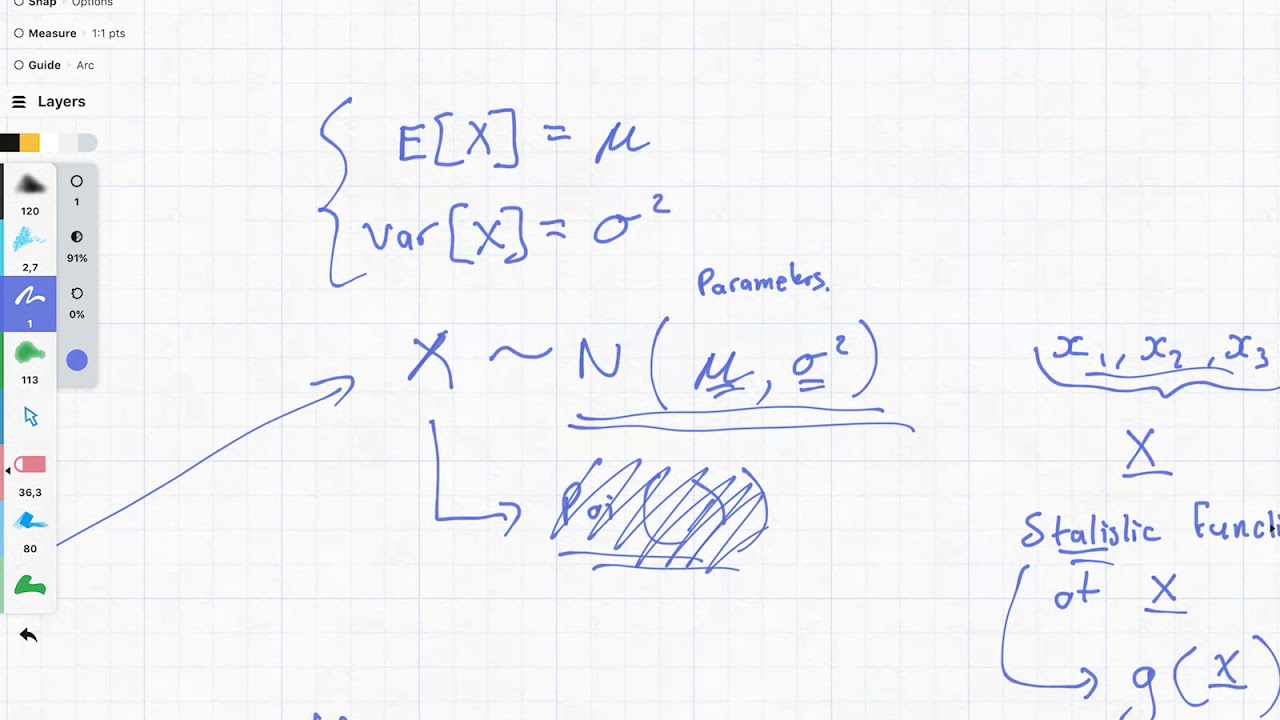 Snap › Options
Measure › 1:1 pts
Guide › Arc
Layers
120
2,7
1
113
36,3
80
1
91%
0%
E[X] = μ
Var[X] = σ²
Parameters.
X ~ N(μ, σ²)
Poi( )
x₁, x₂, x₃
X
Statistic Functi
of X
g(X)